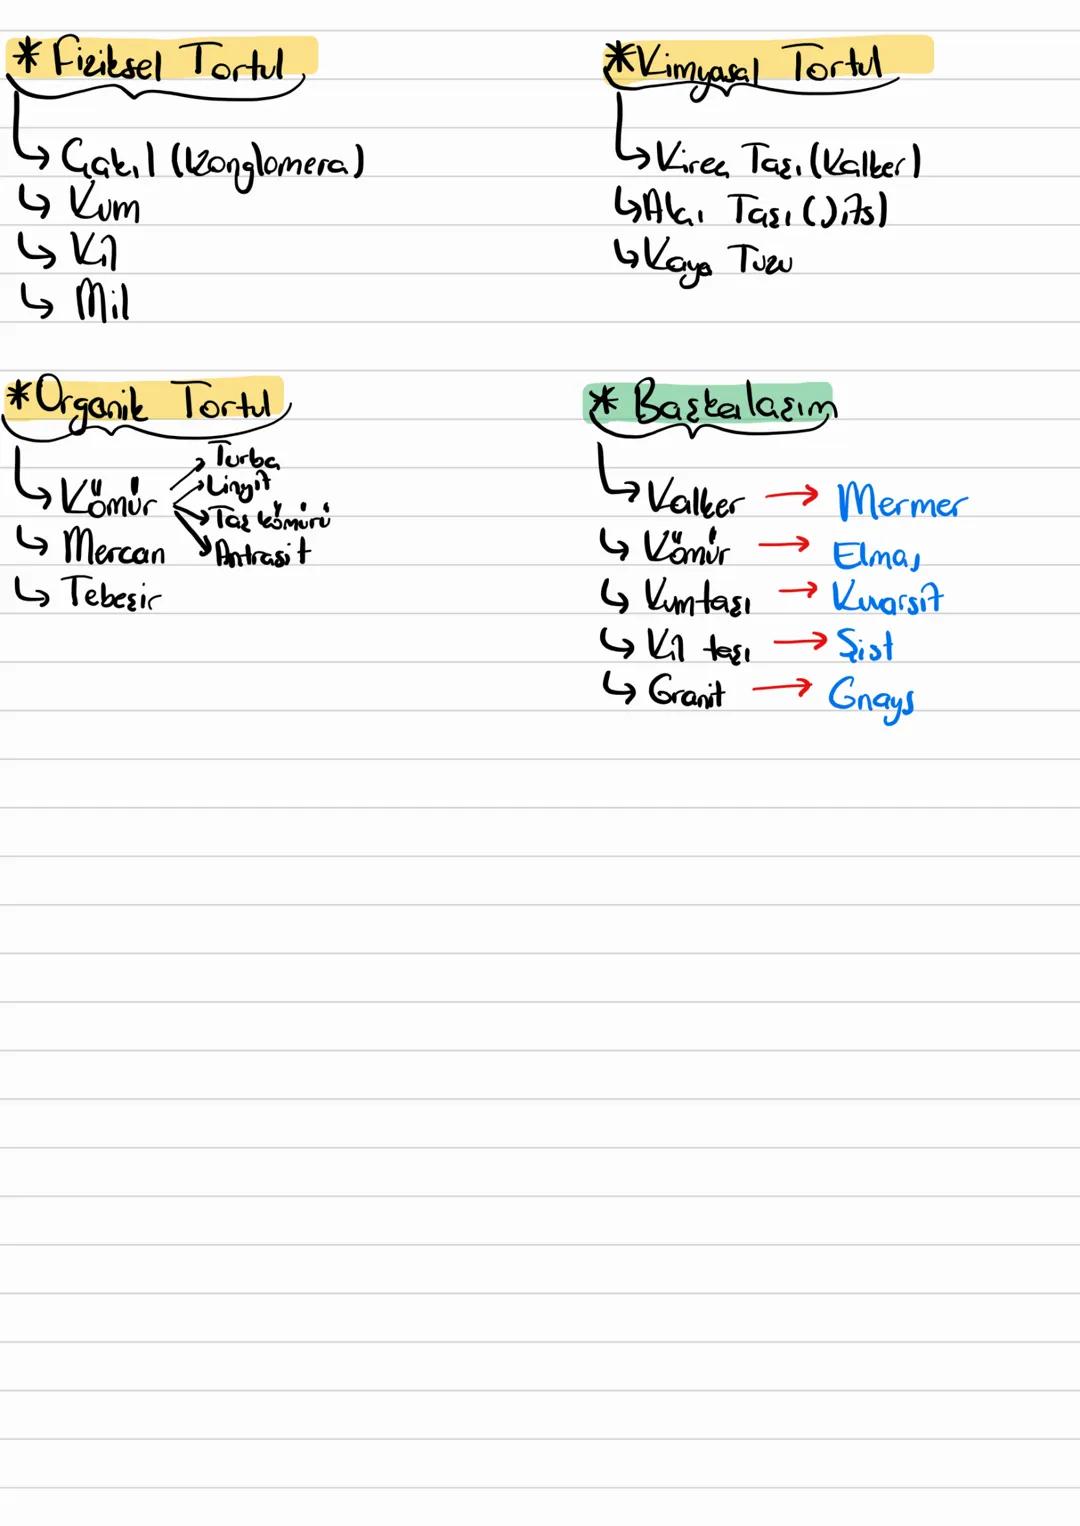 * Fiziksel Tortul
↳ Çakıl (Konglomera)
↳ Kum
↳ Kil
↳ Mil
* Kimyasal Tortul
↳ Kireç Taşı (Kalker)
↳ Alçı Taşı (Jips)
↳ Kaya Tuzu
* Organik Tortul
↳ Kömür → Turba
→ Linyit
→ Taş kömürü
→ Antrasit
↳ Mercan
↳ Tebeşir
* Başkalaşım
↳ Kalker → Mermer
↳ Kömür → Elmas
↳ Kumtaşı → Kuvarsit
↳ Kil taşı → Şist
↳ Granit → Gnays